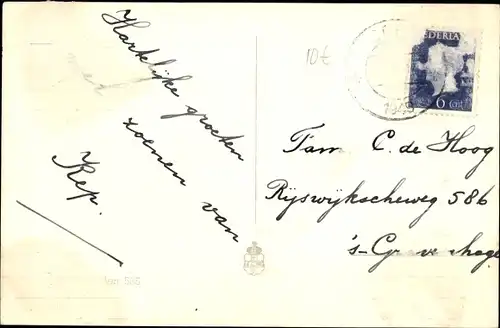 Hartelijke groeten
zoenen van
Kep.
10 €
1949
NEDERLAND
6 Cent
Fam C. de Hoog
Rijswijkscheweg 586
's-Gravenhage
585